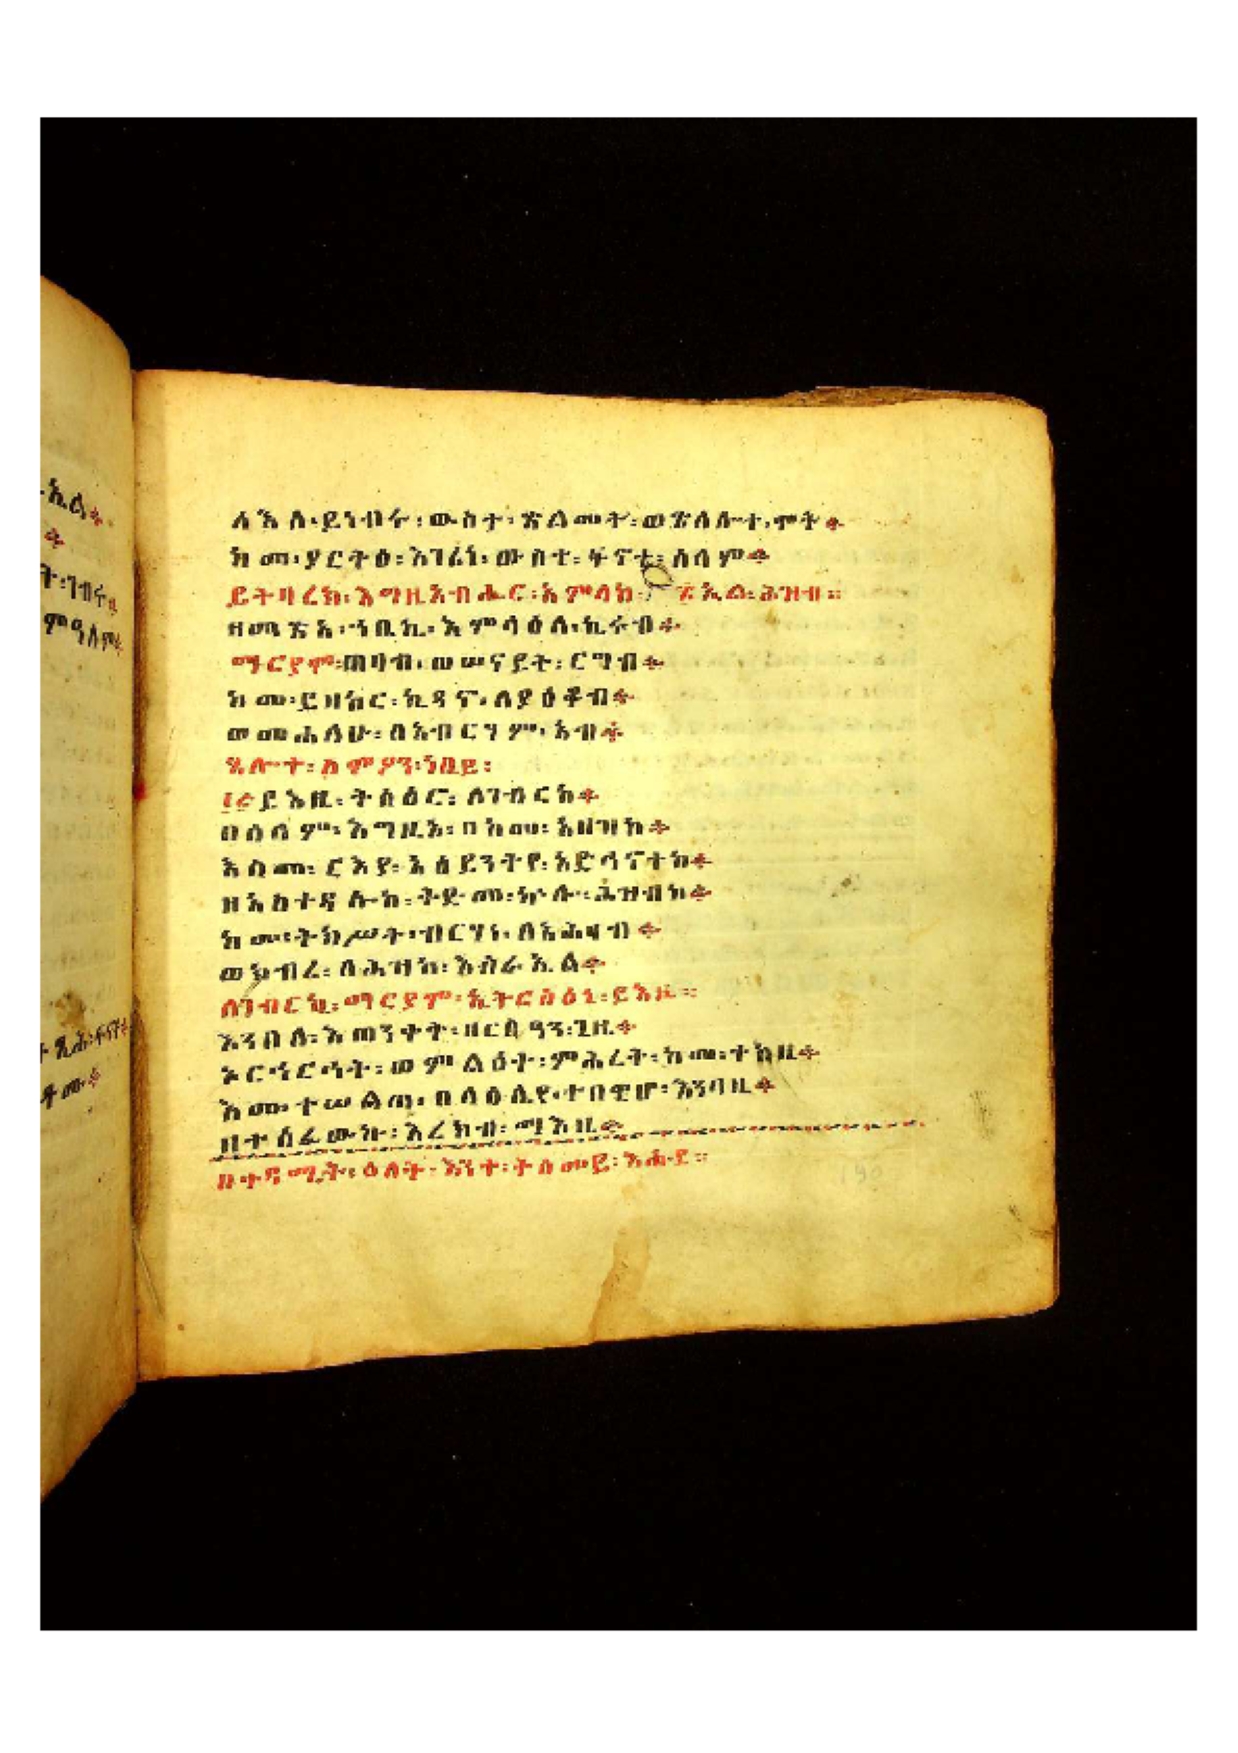 ኤል።
።
ት፡ነብሩ።
ምዓለም።
ጺሑ፡ፍናተ።
ቀዳሙ።
ለእለ፡ይነብሩ፡ውስተ፡ጽልመት፡ወጽላሎተ፡ሞት።
ከመ፡ያርትዕ፡እገሪነ፡ውስተ፡ፍኖተ፡ሰላም።
ይትባረክ፡እግዚአብሔር፡አምላከ፡ ፳ኤል፡ሕዝብ።
ዘመጽአ፡ኀቤኪ፡እምላዕለ፡ኪሩብ።
ማርያም፡ጠባብ፡ወሠናይት፡ርግብ።
ከመ፡ይዝከር፡ኪዳኖ፡ለያዕቆብ።
ወመሐላሁ፡ለአብርሃም፡አብ።
ጸሎተ፡ስምዖን፡ነቢይ፡
፲፭ይእዜ፡ትስዕሮ፡ለገብርከ።
በሰላም፡እግዚአ፡በከመ፡አዘዝከ።
እስመ፡ርእያ፡አዕይንትየ፡አድኅኖተከ።
ዘአስተዳሎከ፡ቅድመ፡ኵሉ፡ሕዝብከ።
ከመ፡ትክሥት፡ብርሃነ፡ለአሕዛብ።
ወክብረ፡ለሕዝከ፡እስራኤል።
ለገብርኪ፡ማርያም፡ኢትርስዕኒ፡ይእዜ።
እንበለ፡እጠንቀቀት፡ዘርስዓን፡ጊዜ።
ኦርኅርኅት፡ወምልዕት፡ምሕረት፡ከመ፡ተከዚ።
እመ፡ተሠልጠ፡በላዕሌየ፡
ዘተሰፈውኩ፡እረክብ፡ማእዜ።
በቀዳሚት፡ዕለት፡እንተ፡ትሰመይ፡እሑድ።